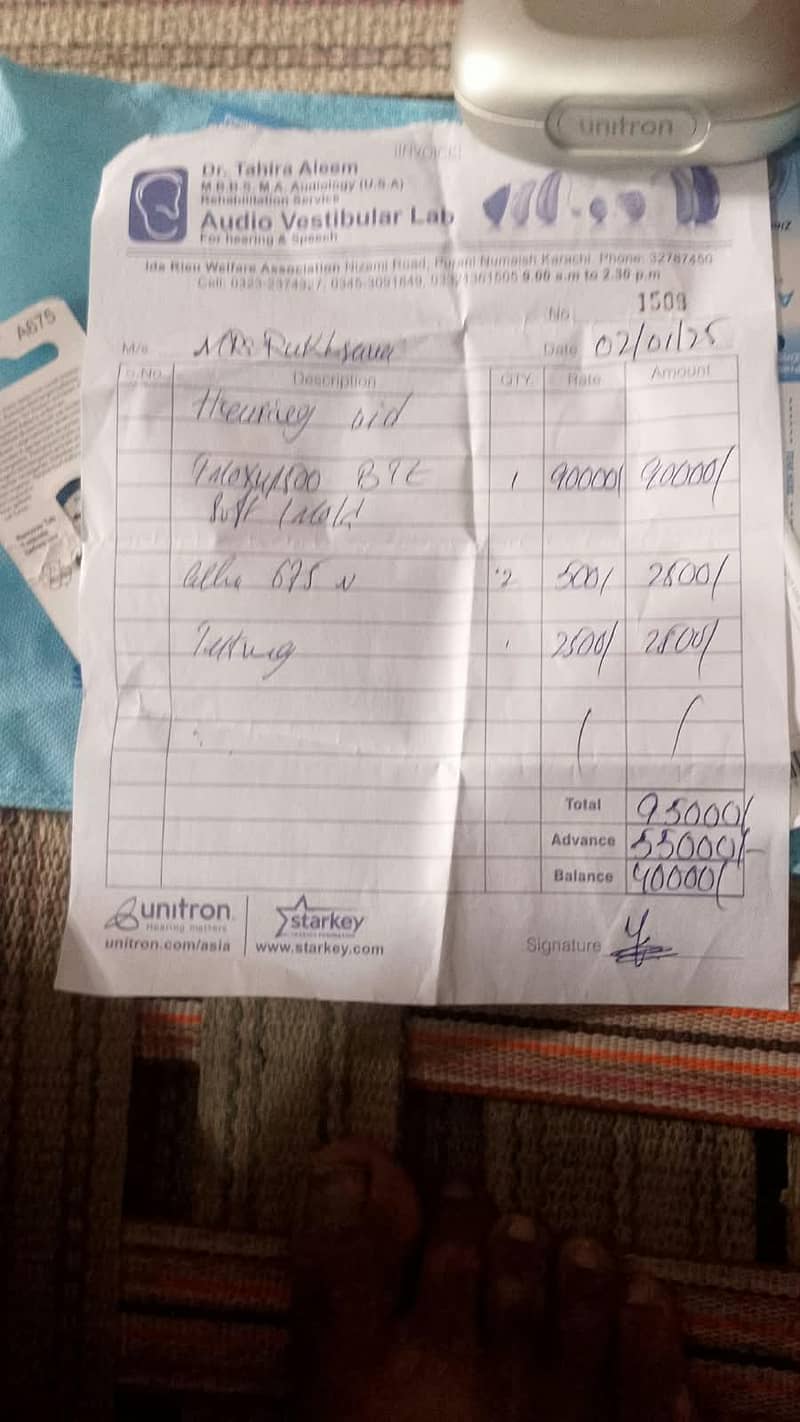 unitron
INVOICE
Dr. Tahira Aleem
M.B.B.S. M.A. Audiology (U.S.A)
Rehabilitation Service
Audio Vestibular Lab
For hearing & Speech
Ida Rieu Welfare Association Nizami Road, Purani Numaish Karachi. Phone: 32787450
Cell: 9.00 a.m to 2.30 p.m
No. 1509
M/s Rukhsana Date 02/01/25
S.No. Description QTY. Rate Amount
Hearing aid
BTE 1 90000/ 90000/
Soft Mold
675 2 500/ 2500/
Testing 1 2500/ 2500/
Total 95000/
Advance 55000/-
Balance 40000/
unitron
Hearing matters
unitron.com/asia
starkey
www.starkey.com
Signature
A675